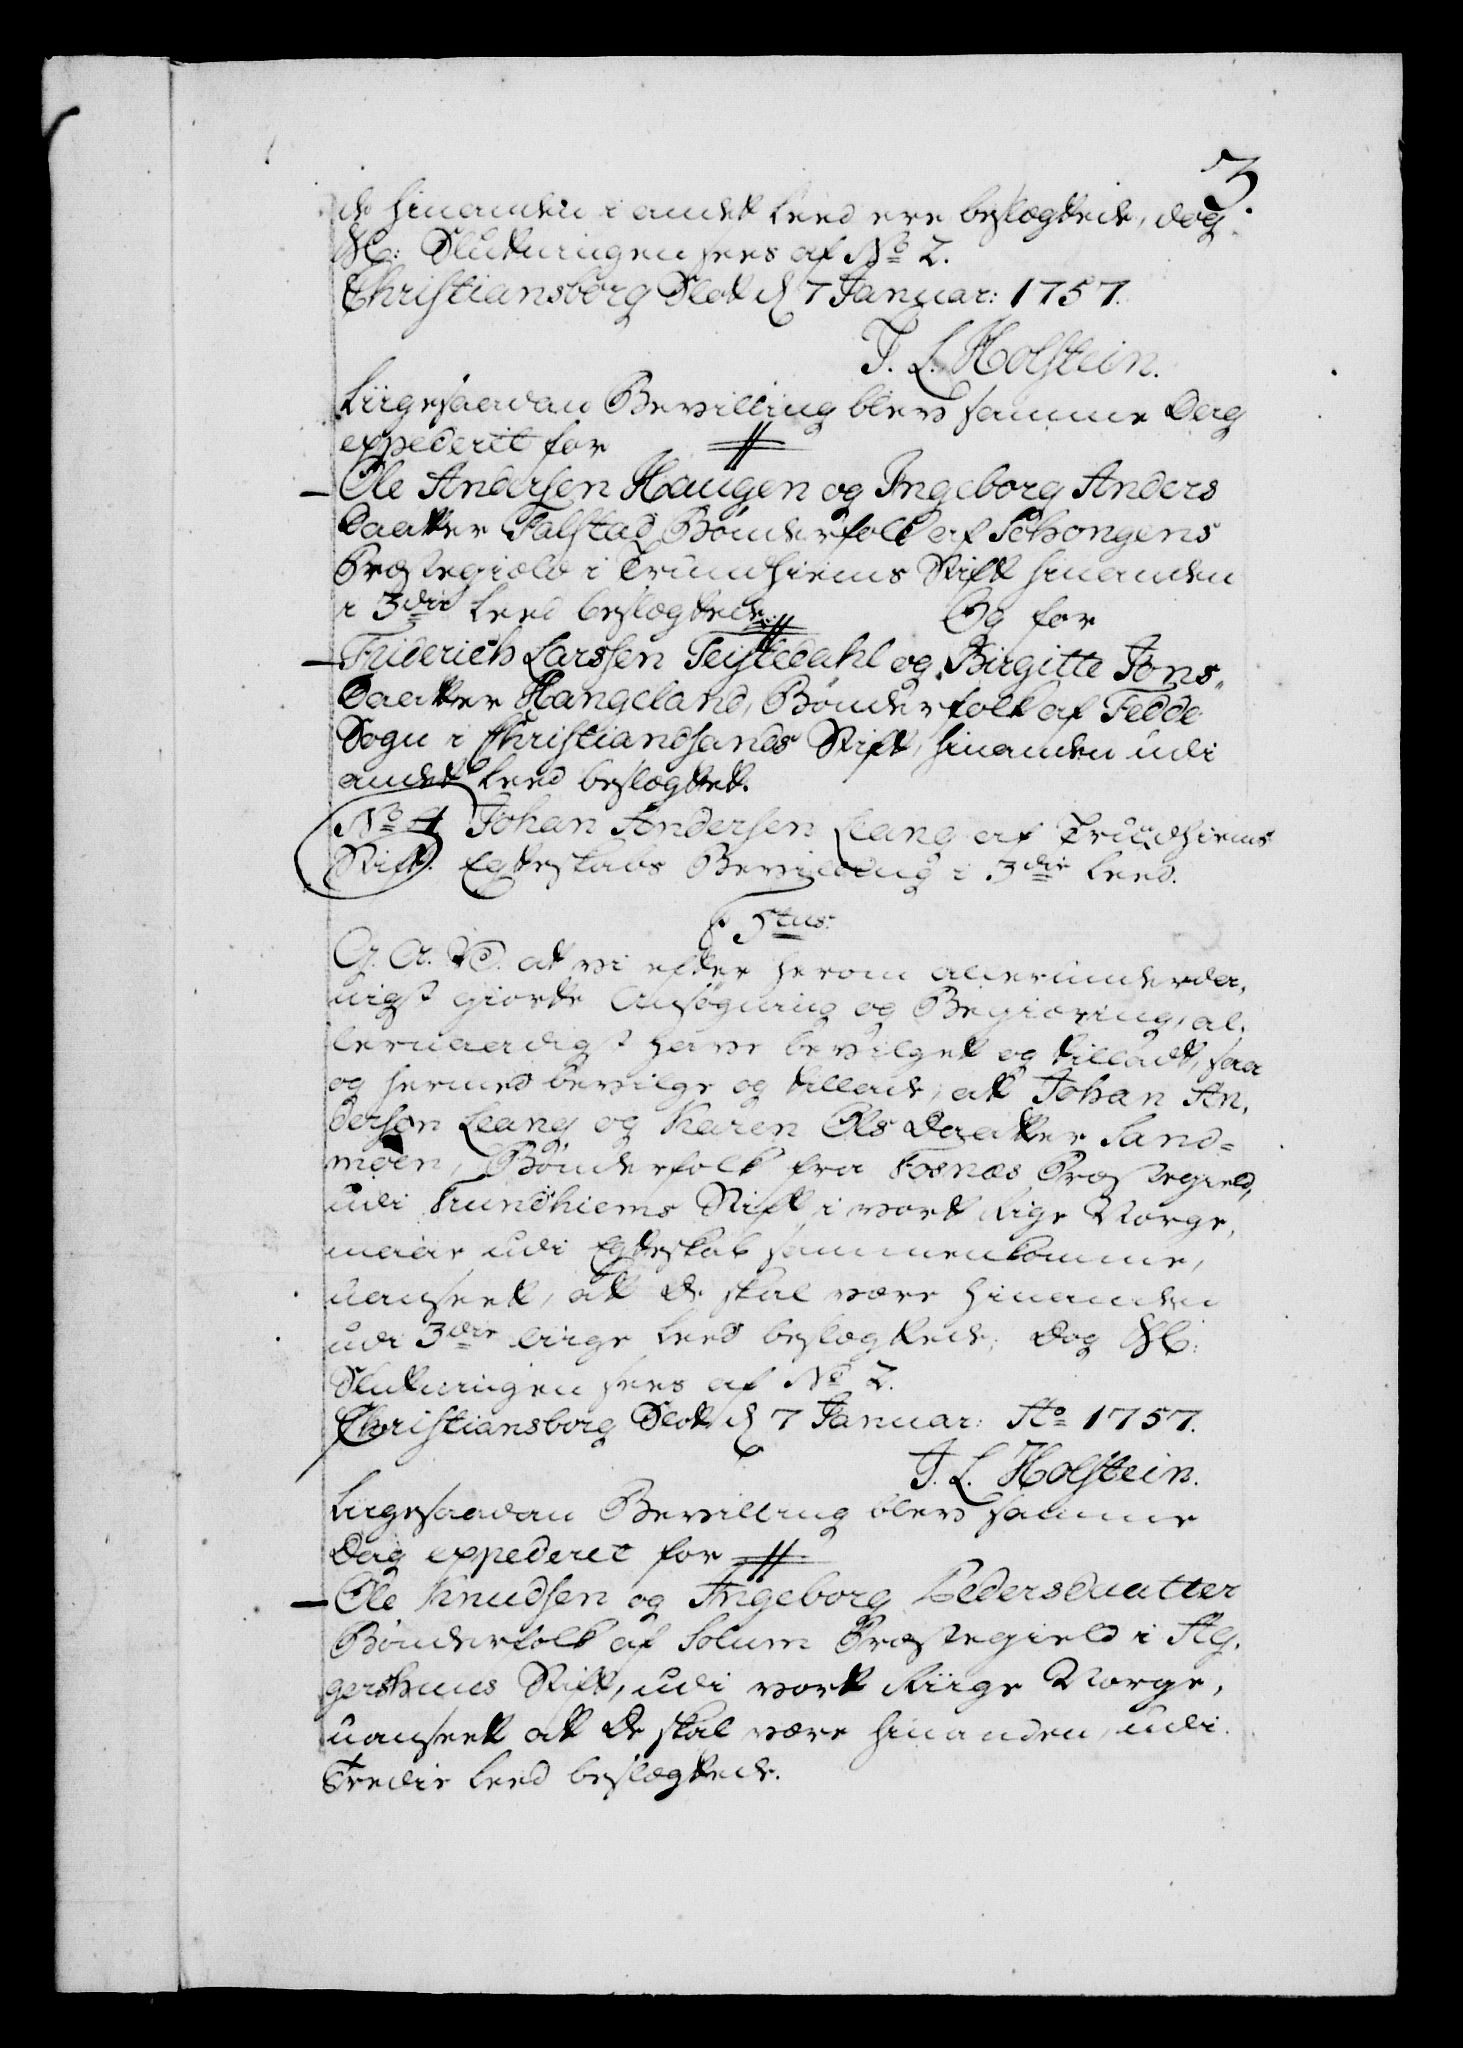 3.
de hinanden i andet Leed ere beslægtede, dog
&c: Slutningen sees af No 2.
Christiansborg Slot d 7 Januar: 1757.
J. L. Holstein.
Liigesaadan Bevilling blev samme Dag
expederit for
Ole Andersen Haugen og Ingeborg Anders
Daatter Falstad Bønderfolk af Schongens
Præstegield i Trundhiems Stift hinanden
i 3die Leed beslægtede. Og for
Friderich Larssen Teistedahl og Birgitte Jons
Daatter Hangeland, Bønderfolk af Fedde
Sogn i Christiandsands Stift, hinanden udi
andet Leed beslægtet.
No 4 Johan Andersen Leang af Trundhiems
Stift Egteskabs Bevilling i 3die Leed.
F 5tus.
G. A. V. at vi efter herom allerunderda,
nigst giorte Ansøgning og Begiæring, al,
lernaadigst have bevilget og tilladt, saa
og hermed bevilge og tillade, at Johan An,
dersen Leang og Karen Ols Daatter Sand=
møen, Bønderfolk fra Fosnæs Præstegield,
udi Trundhiems Stift i vort Rige Norge,
maae udi Egteskab sammenkomme,
uanseet, at de skal være hinanden
udi 3die liige Leed beslægtede; Dog &c:
Slutningen sees af No 2.
Christiansborg Slot d 7 Januar: Ao 1757.
J. L. Holstein.
Liigesaadan Bevilling blev samme
Dag expederet for
Ole Knudsen og Ingeborg Pedersdaatter
Bønderfolk af Solum Præstegield i Ag,
gershuus Stift, udi vort Riige Norge,
uanseet at de skal være hinanden udi
Tredie Leed beslægtede.